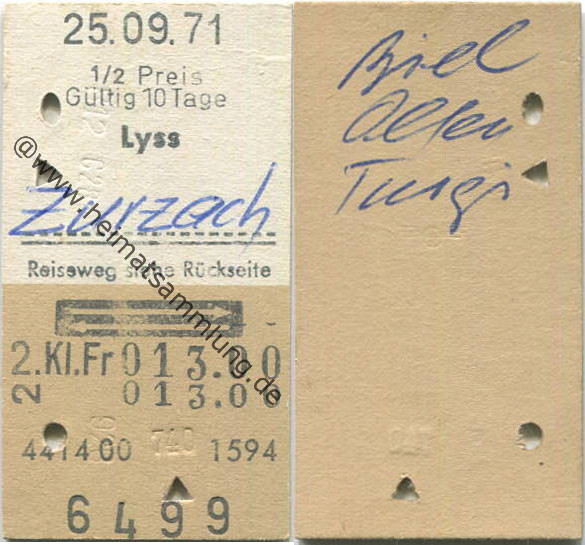 25.09.71
1/2 Preis
Gültig 10 Tage
Lyss
Zurzach
Reiseweg siehe Rückseite
2.Kl.Fr 013.00
2 013.00
441400 740 1594
6499
Biel
Olten
Turgi
@www.heimatsammlung.de